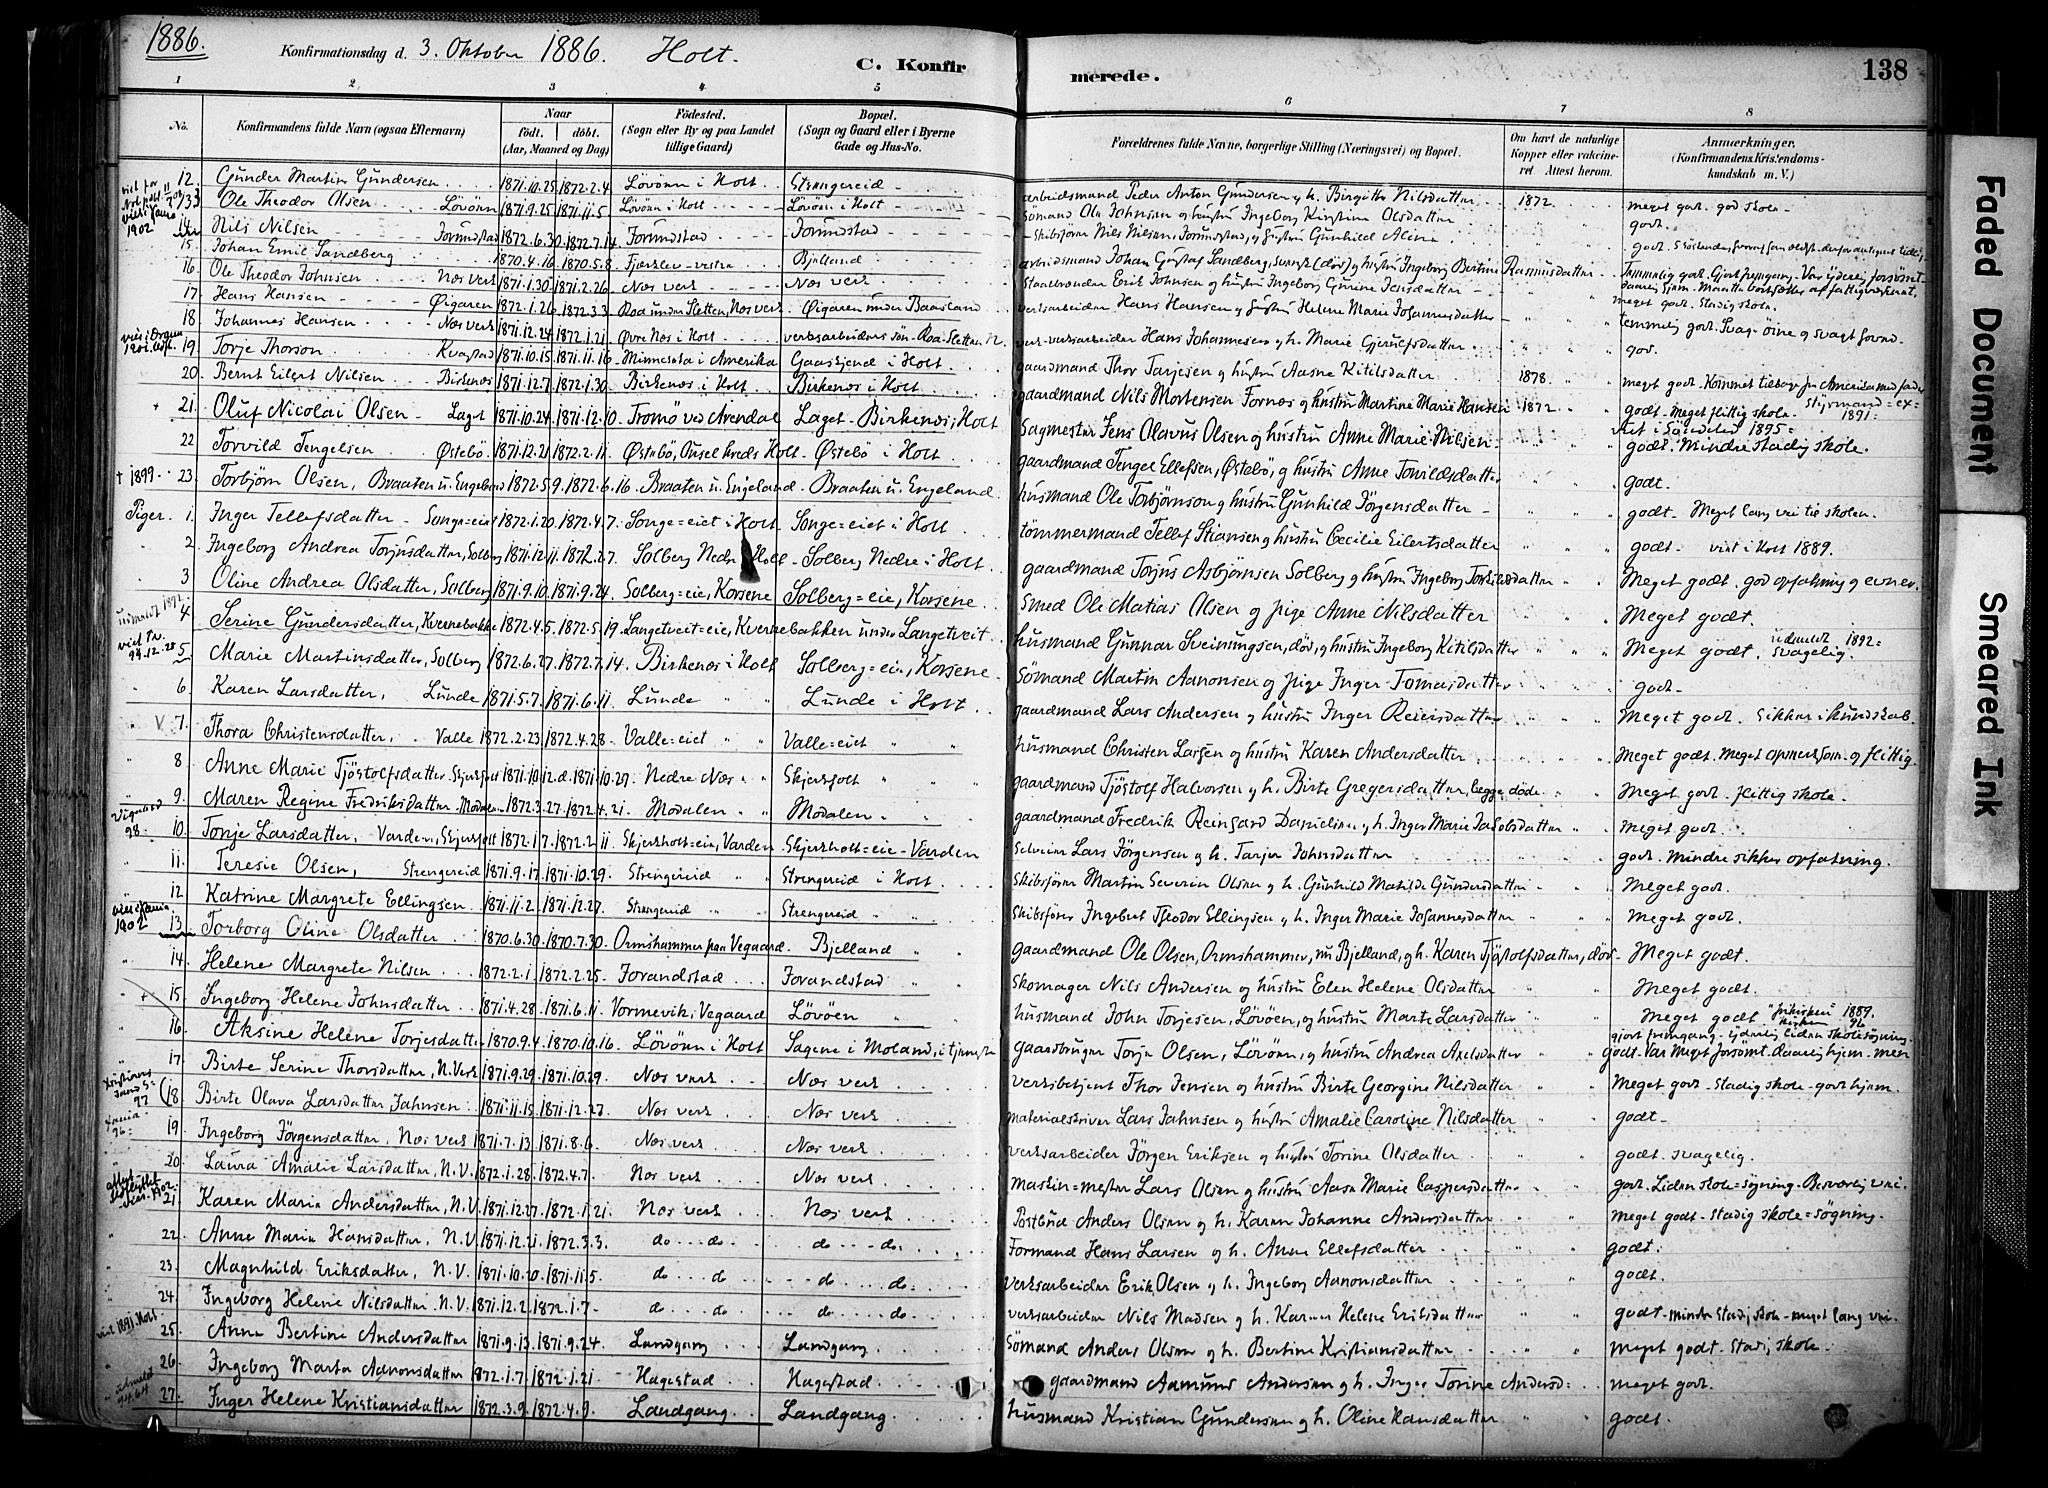 1886.
Konfirmationsdag d. 3. Oktober 1886. Holt.
C. Konfirmerede.
138
1 2 3 4 5 6 7 8
No.
Konfirmandens fulde Navn (ogsaa Efternavn)
Naar
födt. döbt.
(Aar, Maaned og Dag)
Födested.
(Sogn eller By og paa Landet
tillige Gaard)
Bopæl.
(Sogn og Gaard eller i Byerne
Gade og Hus-No.
Forældrenes fulde Navne, borgerlige Stilling (Næringsvei) og Bopæl.
Om havt de naturlige
Kopper eller vakcineret. Attest herom.
Anmærkninger.
(Konfirmandens Kristendomskundskab m. V.)
12. Gunder Martin Gundersen 1871.10.25 1872.2.4 Lövönn i Holt Strengereid arbeidsmand Peder Anton Gundersen g h. Birgitte Nilsdatter 1872. meget godt. god skole
Ole Theodor Olsen Lövönn 1871.9.25 1871.11.5 Lövönn i Holt Lövönn i Holt Sömand Ole Johnsen og hustru Ingeborg Kirstine Olsdatter godt.
14 Nils Nilsen Forundstad 1872.6.30 1872.7.14 Forundstad Forundstad Skibsförer Nils Nilsen, Forundstad, og hustru Gunhild Aline
15. Johan Emil Sandberg 1870.4.16 1870.5.8 Bjelland arbeidsmand Johan Gustaf Sandberg, svensk (död) g hustru Ingeborg Bertine Rasmusdatter
16. Ole Theodor Johnsen Næs verk 1871.1.30 1871.2.26 Næs verk Næs verk Erik Johnsen og hustru Ingeborg Gurine Jensdatter
17. Hans Hansen Øigaren 1872.1.26 1872.3.3 Roa under Sletten, Næs verk Øigaren under Baasland verksarbeider Hans Hansen g hustru Helene Marie Johannesdatter meget godt. Stadig skole.
18 Johannes Hansen Næs verk 1871.12.24 1872.1.21 Øvre Næs i Holt verksarbeiders sön Roa Sletten verksarbeider Hans Johannesen g h. Marie temmelig godt. Svage öine og svagt forstd.
19. Torje Thorson Kvastad 1871.10.15 1871.11.16 Minnesota i Amerika Gaaskjend i Holt gaardmand Thor Tarjesen g hustru Aasne Kitilsdatter 1878. meget godt. Kommet tilbage fra Amerika med fader
20. Bernt Eilert Nilsen Birkenæs 1871.12.7 1872.1.30 Birkenæs i Holt Birkenæs i Holt gaardmand Nils Mortensen Fornæs og hustru Martine Marie Hansen 1872 godt. Meget flittig skole. Styrmand=ex= 1891=
+ 21. Oluf Nicolai Olsen Laget 1871.10.24 1871.12.10 Tromö ved Arendal Laget Birkenæs, Holt Sagmester Jens Olavus Olsen og hustru Anne Marie Nilsen 1895=
22 Torvild Tengelsen Østebö 1871.12.21 1872.2.11 Østebö, Holt Østebö i Holt gaardmand Tengel Ellefsen, Østebö, g hustru Anne Torvildsdatter godt. Mindre stadig skole.
+ 1899. 23. Torbjörn Olsen, Braaten u. Engeland 1872.5.9. 1872.6.16. Braaten u. Engeland Braaten u. Engeland husmand Ole Torbjörnson g hustru Gunhild Jörgensdatter godt.
Piger. 1. Inger Tellefsdatter Songe=eiet 1872.1.20 1872.4.7. Songe=eiet i Holt Songe=eiet i Holt tömmermand Tellef Stiansen g hustru Cecilie Eilertsdatter godt Meget lang vei til skolen.
2. Ingeborg Andrea Torjusdatter, Solberg 1871.12.11 1872.2.7 Solberg Nedre Holt Solberg Nedre i Holt gaardmand Torjus Asbjörnsen Solberg g hustru Ingeborg Torkilsdatter godt viet i Holt 1889.
3 Oline Andrea Olsdatter, Solberg 1871.9.10 1871.9.24 Solberg=eie, Korsene Solberg=eie, Korsene Smed Ole Matias Olsen og pige Anne Nilsdatter Meget godt. god opfatning g evner
4 Serine Gundersdatter, Kvernebakke 1872.4.5. 1872.5.19. Langetveit=eie, Kvernebakken under Langetveit. husmand Gunnar Sveinungsen, död, g hustru Ingeborg Kitilsdatter Meget godt.
5 Marie Martinsdatter, Solberg 1872.6.27 1872.7.14. Birkenæs i Holt Solberg=eie, Korsene Sömand Martin Aanonsen og pige Inger Tomasdatter Meget godt. udmeldt 1892= svagelig.
6 Karen Larsdatter, Lunde 1871.5.7 1871.6.11 Lunde Lunde i Holt gaardmand Lars Andersen g hustru Inger Reiersdatter godt
7. Thora Christensdatter, Valle 1872.2.23 1872.4.28 Valle=eiet Valle=eiet husmand Christen Larsen g hustru Karen Andersdatter Meget godt. Sikker i kundskab
8 Anne Marie Tjöstolfsdatter 1871.10.12 1871.10.29 Nedre Næs Skjerkholt gaardmand Tjöstolf Halvorsen g h. Birte Gregersdatter, begge döde Meget godt. Meget opmerksom og flittig
9. Maren Regine Fredriksdatter Modalen 1872.3.27 1872.4.21. Modalen Modalen gaardmand Fredrik Reinhard Danielsen g h. Inger Marie Jakobsdatter Meget godt. flittig skole.
10. Torje Larsdatter, Varden, Skjerkholt 1872.1.7 1872.2.11 Skjerkholt=eie, Varden Skjerkholt=eie Varden Lars Jörgensen g h. Tarjer Johnsdatter Meget godt.
11. Teresie Olsen, Strengereid 1871.9.17 1871.10.29. Strengereid Strengereid i Holt Skibsförer Martin Severin Olsen g h. Gunhild Matilde Gundersdatter godt. mindre sikker opfatning.
12 Katrine Margrete Ellingsen 1871.11.2 1871.12.27 Strengereid Strengereid Skibsförer Ingebret Theodor Ellingsen g h. Inger Marie Johannesdatter Meget godt.
1902 13 Torborg Oline Olsdatter 1870.6.30 1870.7.30. Ormshammer paa Vegaard Bjelland gaardmand Ole Olsen, Ormshammer, nu Bjelland, g h. Karen Tjöstolfsdatter, död Meget godt.
14. Helene Margrete Nilsen 1872.2.1 1872.2.25 Forandstad Forandstad Skomager Nils Andersen og hustru Elen Helene Olsdatter Meget godt.
+ 15. Ingeborg Helene Johnsdatter 1871.4.28 1871.6.11 Vormevik, Vegaard Lövöen husmand John Torjesen, Lövöen, og hustru Marte Larsdatter Meget godt 1889.
16 Aksine Helene Torjesdatter 1870.9.4 1870.10.16. Lövönn i Holt Sagene i Moland, i tjeneste gaardbruger Torje Olsen, Lövönn, og hustru Andrea Axelsdatter godt. Var meget forsömt. daarlig hjem
17. Birte Serine Thorsdatter, N. Verk 1871.9.29 1871.10.29. Næs verk Næs verk verksbetjent Thor Jensen og hustru Birte Georgine Nilsdatter Meget godt. Stadig skole. godt hjem.
18. Birte Olava Larsdatter Jahnsen 1871.11.15 1871.12.27 Næs verk Næs verk materialskriver Lars Jahnsen g hustru Amalie Caroline Nilsdatter godt
19. Ingeborg Jörgensdatter, Næs verk 1871.7.13 1871.8.6. Næs verk Næs verk verksarbeider Jörgen Eriksen g hustru Torine Olsdatter godt. svagelig.
20 Laura Amalie Larsdatter, N.V. 1872.1.28 1872.4.7. Næs verk Næs verk maskin=mester Lars Olsen g hustru Aase Marie Caspersdatter godt. Liden skole=sögning. Besværlig vei.
21 Karen Marie Andersdatter, N.V. 1871.12.27 1872.1.21. Næs verk Næs verk Postbud Anders Olsen g h. Karen Johanne Andersdatter Meget godt. Stadig skole=sögning.
22. Anne Marie Hansdatter, N.V. 1871.12.21. 1872.3.3. do do do do Formand Hans Larsen g h. Anne Ellefsdatter godt.
23. Magnhild Eriksdatter, N.V. 1871.10.20 1871.11.5. do do do do verksarbeider Erik Olsen g h. Ingeborg Aanonsdatter godt.
24. Ingeborg Helene Nilsdatter N.V. 1871.12.2. 1872.1.7 do do do do verksarbeider Nils Madsen g h. Karen Helene Eriksdatter godt mindre stadig skole meget lang vei.
viet 1891 Holt 25. Anne Bertine Andersdatter 1871.9.13 1871.9.24 Landgang Landgang Sömand Anders Olsen g h. Bertine Kristiansdatter meget godt. Stadig skole.
26. Ingeborg Marte Aanonsdatter 1872.1.7 1872.1.21 Hagestad Hagestad gaardmand Aamund Andersen g h. Inger Torine Andersd= meget godt.
27. Inger Helene Kristiansdatter 1872.3.9. 1872.4.9. Landgang Landgang husmand Kristian Gundersen g h. Oline Hansdatter godt.
Faded Document
Smeared Ink